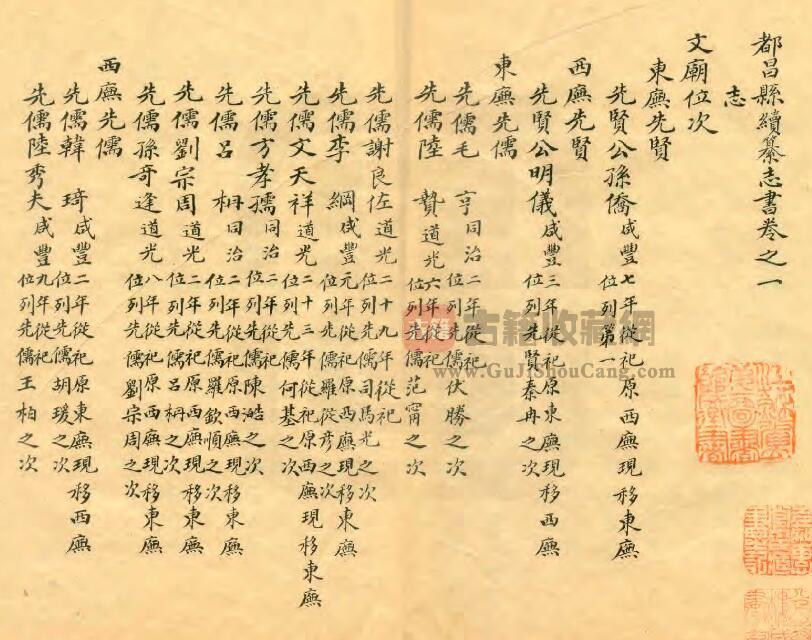 都昌縣續纂志書卷之一
志
文廟位次
東廡先賢
先賢公孫僑咸豐七年從祀原西廡現移東廡位列第一
西廡先賢
先賢公明儀咸豐三年從祀原東廡現移西廡位列先賢秦冉之次
東廡先儒
先儒毛亨同治二年從祀位列先儒伏勝之次
先儒陸贄道光六年從祀位列先儒范甯之次
先儒謝良佐道光二十九年從祀位列先儒司馬光之次
先儒李綱咸豐元年從祀原西廡現移東廡位列先儒羅從彥之次
先儒文天祥道光二十三年從祀原西廡現移東廡位列先儒何基之次
先儒方孝孺同治二年從祀位列先儒陳澔之次
先儒呂柟同治二年從祀原西廡現移東廡位列先儒羅欽順之次
先儒劉宗周道光二年從祀原西廡現移東廡位列先儒呂柟之次
先儒孫奇逢道光八年從祀原西廡現移東廡位列先儒劉宗周之次
西廡先儒
先儒韓琦咸豐二年從祀原東廡現移西廡位列先儒胡瑗之次
先儒陸秀夫咸豐九年從祀位列先儒王柏之次
古籍收藏網
www.GuJiShouCang.com